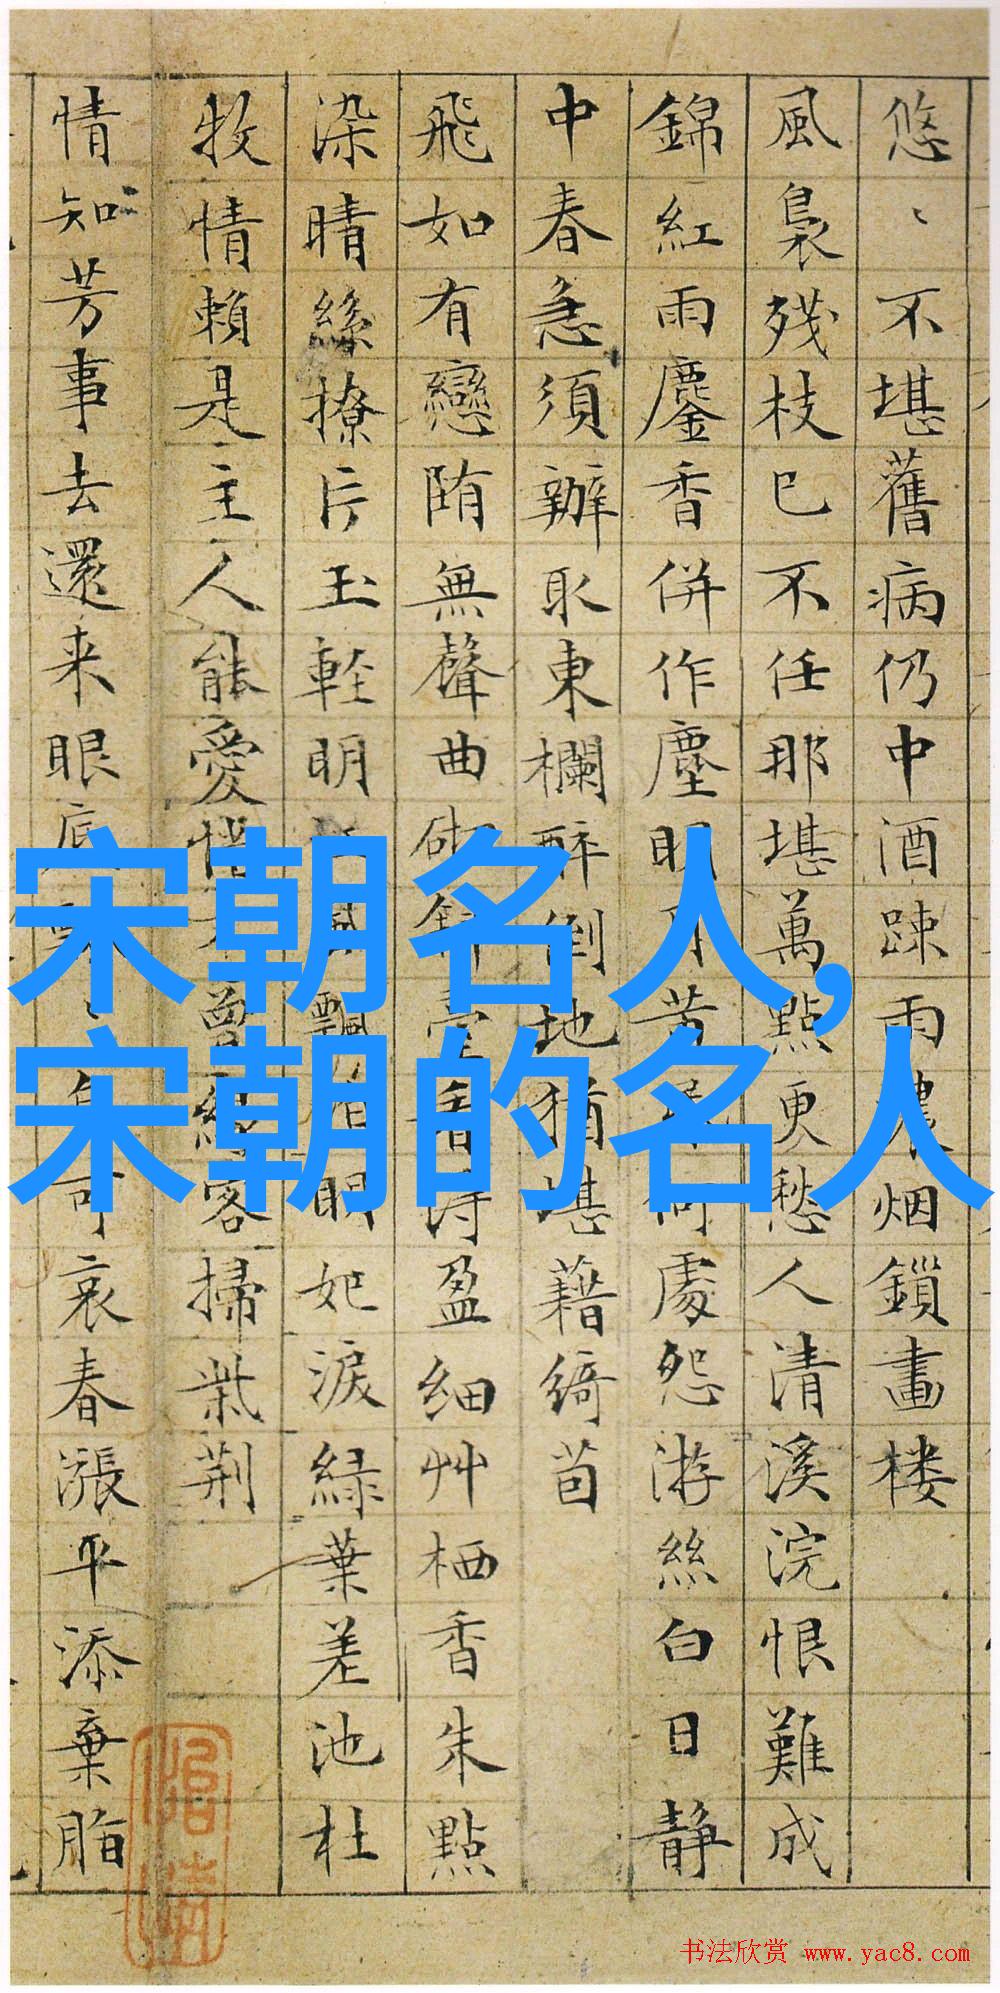 宋朝名人,
宋朝的名人
悠、不堪舊病仍中酒踈雨烟鎖畫楼
風裊残枝已不任那堪萬點更愁人清溪浣恨難成
錦紅雨鏖香併作塵明處怨游絲白日静
中春急須辦取東欄醉倒地猶堪藉綺茵
飛如有戀隋無聲曲砌香盈細艸栖香朱點
染晴絲撩片玉輕明風飄明妃淚緑葉差池杜
牧情賴是主人能愛惜曾經客掃柴荆
情知芳事去還来眼底可哀春漲平添棄脂
书法欣赏 www.yac8.com